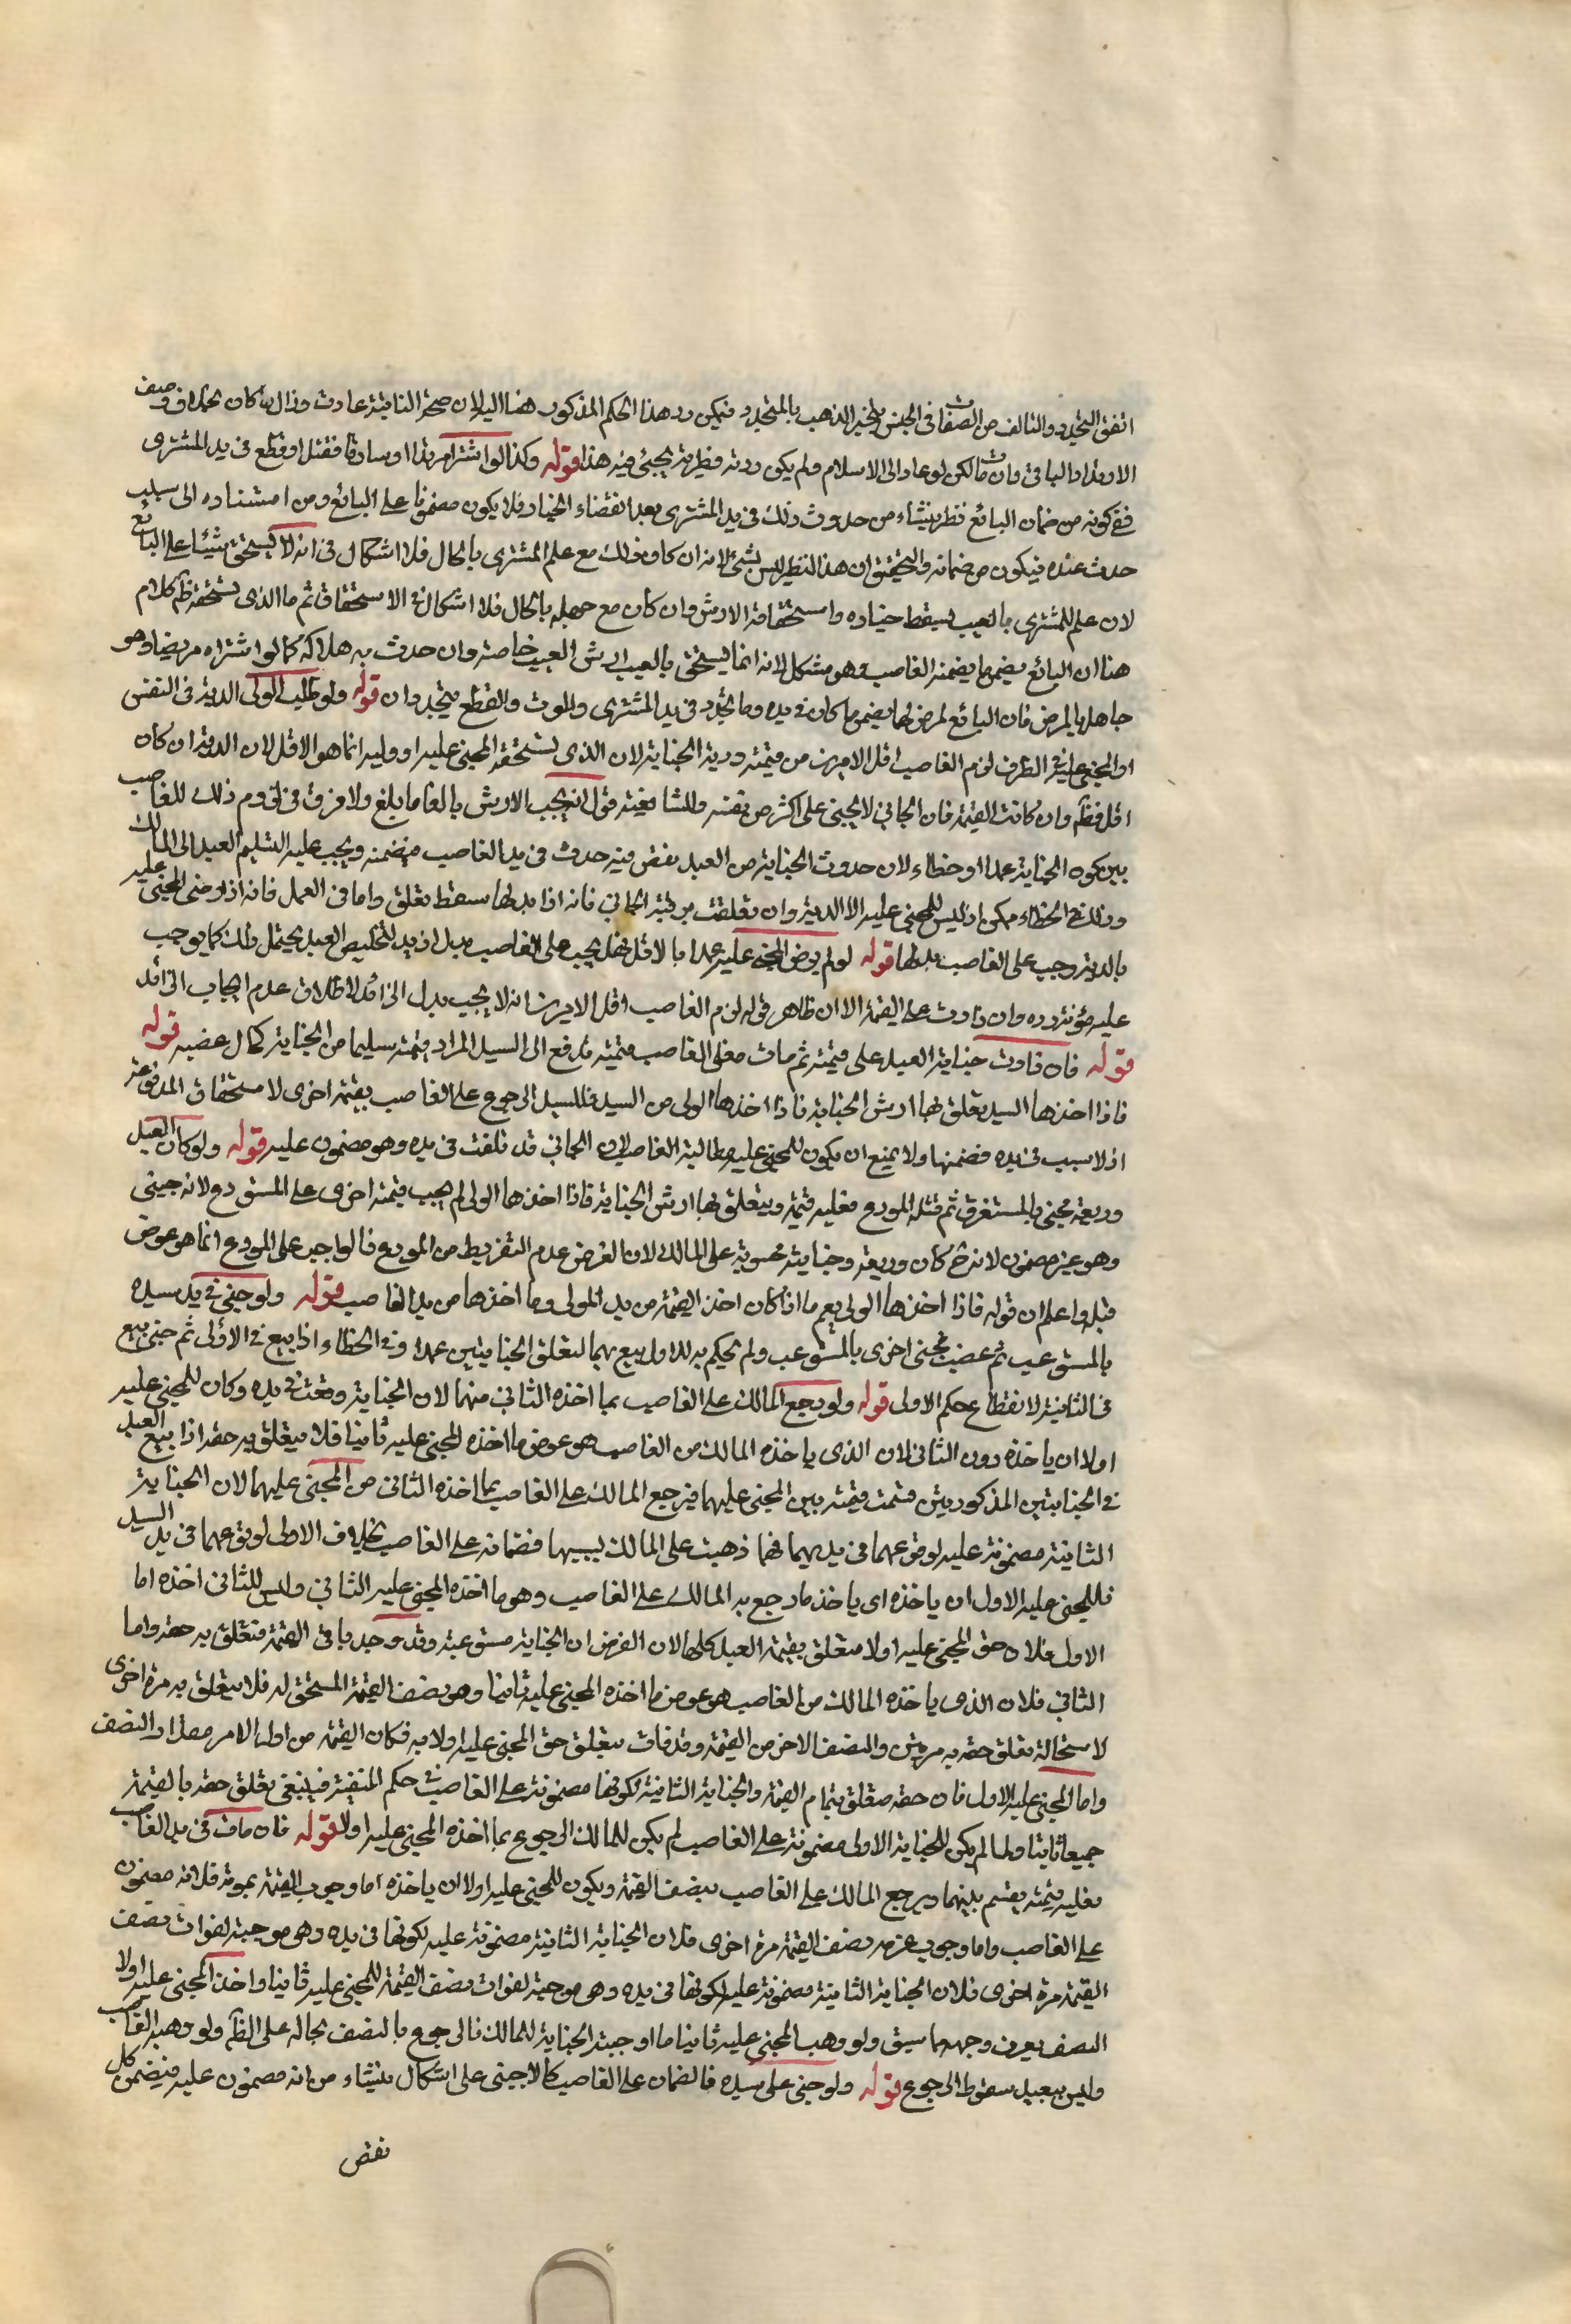 اتفق المتجدد والتالف من الصفات في الجنس ويخير الذهب بالمتجدد فيمكن رد هذا الحكم المذكور هنا اليلان صحة الثانية عادت وزال ما كان بخلاف وصف
الارتداد الباقي وان مات لكن لو عاد الى الاسلام ولم يكن ردته فطرية يجيئ فيه هذا قوله وكذا لو اشترا مرتدا او سارقا فقتل او قطع في يد المشترى
ففي كونه من ضمان البائع نظر ينشاء من حدوث ذلك في يد المشترى بعد انقضاء الخيار فلا يكون مضمونا على البائع ومن استناده الى سبب
حدث عنده فيكون من ضمانه والتحقيق ان هذا النظر ليس بشئ لانه ان كان ذلك مع علم المشترى بالحال فلا اشكال في انه لا يستحق شيئا على البائع
لان علم المشترى بالعيب يسقط خياره واستحقاقه الارش وان كان مع جهله بالحال فلا اشكال في الاستحقاق ثم ما الذي يستحقه ظاهر كلام
هنا ان البائع يضمن ما يضمنه الغاصب وهو مشكل لانه انما يستحق بالعيب ارش العيب خاصة وان حدث به هلاكه كما لو اشتراه مريضا وهو
جاهل بالمرض فان البائع لمرض انما يضمن ما كان في يده وما تجدد في يد المشترى والموت والقطع متجددان قوله ولو طلب الولي الدية في النفس
او المجني عليه في الطرف لزم الغاصب اقل الامرين من قيمته ودية الجناية لان الذي يستحقه المجني عليه او وليه انما هو الاقل لان الدية ان كان
اقل فظاهر وان كانت القيمة فان الجاني لا يجني على اكثر من نفسه وللشافعية قول انه يجب الارش بالغا ما بلغ ولا فرق في لزوم ذلك للغاصب
بين كون الجناية عمدا او خطاء لان حدوث الجناية من العبد نقص فيه حدث في يد الغاصب فيضمنه ويجب عليه التسليم العبد الى المالك
وذلك في الخطاء ممكن اذ ليس للمجني عليه الا الدية وان تعلقت برقبة الجاني فانه اذا بذلها سقط تعلق واما في العمد فانه اذا رضي المجني عليه
بالدية وجب على الغاصب بذلها قوله لو لم يرض المجني عليه عمدا بالاقل فهل يجب على الغاصب بذل ازيد لتخليص العبد يحتمل ذلك كما يوجب
عليه مؤنة رده وان زادت على القيمة الا ان ظاهر قوله لزم الغاصب اقل الامرين انه لا يجب بذل الزائد لاطلاق عدم ايجاب الزائد
قوله فان زادت جناية العبد على قيمته ثم مات فعلى الغاصب قيمته تدفع الى السيد المراد قيمته سليما من الجناية كمال غصبه قوله
فاذا اخذها السيد تعلق بها ارش الجناية فاذا اخذها الولي من السيد فللسيد الرجوع على الغاصب بقيمة اخرى لاستحقاق المدفوعة
اذ لا سبب في يده فضمنها ولا يمنع ان يكون للمجني عليه مطالبة الغاصب لان الجاني قد تلفت في يده وهو مضمون عليه قوله ولو كان العبد
وديعة فجنى بالمستغرق ثم قتله المودع فعليه قيمته ويتعلق بها ارش الجناية فاذا اخذها الولي لم يجب قيمته اخرى على المستودع لانه جنى
وهو غير مضمون لانه كان وديعة وجنايته محسوبة على المالك لان الغرض عدم التفريط من المودع فالواجب على المودع انما هو عوض
قتله واعلم ان قوله فاذا اخذها الولي يعم ما اذا كان اخذ القيمة من يد المولى وما اخذها من يد الغاصب قوله ولو جنى في يد سيده
بالمستوعب ثم غصب فجنى اخرى بالمستوعب ولم يحكم به للاول بيع بهما لتعلق الجنايتين عمدا وفي الخطاء اذا بيع في الاولى ثم جنى بيع
في الثانية لانقطاع حكم الاولى قوله ولو رجع المالك على الغاصب بما اخذه الثاني منهما لان الجناية وقعت في يده وكان للمجني عليه
اولا ان ياخذه دون الثاني لان الذي ياخذه المالك من الغاصب هو عوض ما اخذه المجني عليه ثانيا فلا يتعلق به حقه اذا بيع العبد
في الجنايتين المذكورتين قسمت قيمته بين المجني عليهما فيرجع المالك على الغاصب بما اخذه الثاني من المجني عليهما لان الجناية
الثانية مضمونة عليه لوقوعهما في يديهما فما ذهبت على المالك بسببها فضمانه على الغاصب بخلاف الاولى لوقوعهما في يد السيد
فللمجني عليه الاول ان ياخذه اى ياخذ ما رجع به المالك على الغاصب وهو ما اخذه المجني عليه الثاني وليس للثاني اخذه اما
الاول فلان حق المجني عليه اولا متعلق بقيمة العبد كلها لان الفرض ان الجناية مستوعبة وقد وجد باقي القيمة فتعلق به حقه واما
الثاني فلان الذي ياخذه المالك من الغاصب هو عوض ما اخذه المجني عليه ثانيا وهو نصف القيمة المستحق له فلا يتعلق به مرة اخرى
لاستحالة تعلق حقه به مرتين والنصف الاخر من القيمة وقد فات بتعلق حق المجني عليه اولا به فكان القيمة من اول الامر مقدار النصف
واما المجني عليه الاول فان حقه متعلق بتمام القيمة والجناية الثانية لكونها مضمونة على الغاصب في حكم المنفية فينبغي تعلق حقه بالقيمة
جميعا ثابتا ولما لم يكن للجناية الاولى مضمونة على الغاصب لم يكن للمالك الرجوع بما اخذه المجني عليه اولا قوله فان مات في يد الغاصب
فعليه قيمته يقسم بينهما ويرجع المالك على الغاصب بنصف القيمة ويكون للمجني عليه اولا ان ياخذه اما وجوب القيمة بموته فلانه مضمون
على الغاصب واما وجوب غرمه نصف القيمة مرة اخرى فلان الجناية الثانية مضمونة عليه لكونها في يده وهي موجبة لفوات نصف
القيمة مرة اخرى فلان الجناية الثانية مضمونة عليه لكونها في يده وهي موجبة لفوات نصف القيمة للمجني عليه ثانيا واخذ المجني عليه اولا
النصف يعرف وجهه مما سبق ولو وهب المجني عليه ثانيا ما اوجبته الجناية للمالك فالرجوع بالنصف بحاله على الظاهر ولو وهبه الغاصب
وليس ببعيد سقوط الرجوع قوله ولو جنى على سيده فالضمان على الغاصب كالاجنبي على اشكال ينشاء من انه مضمون عليه فيضمن كل
نقص